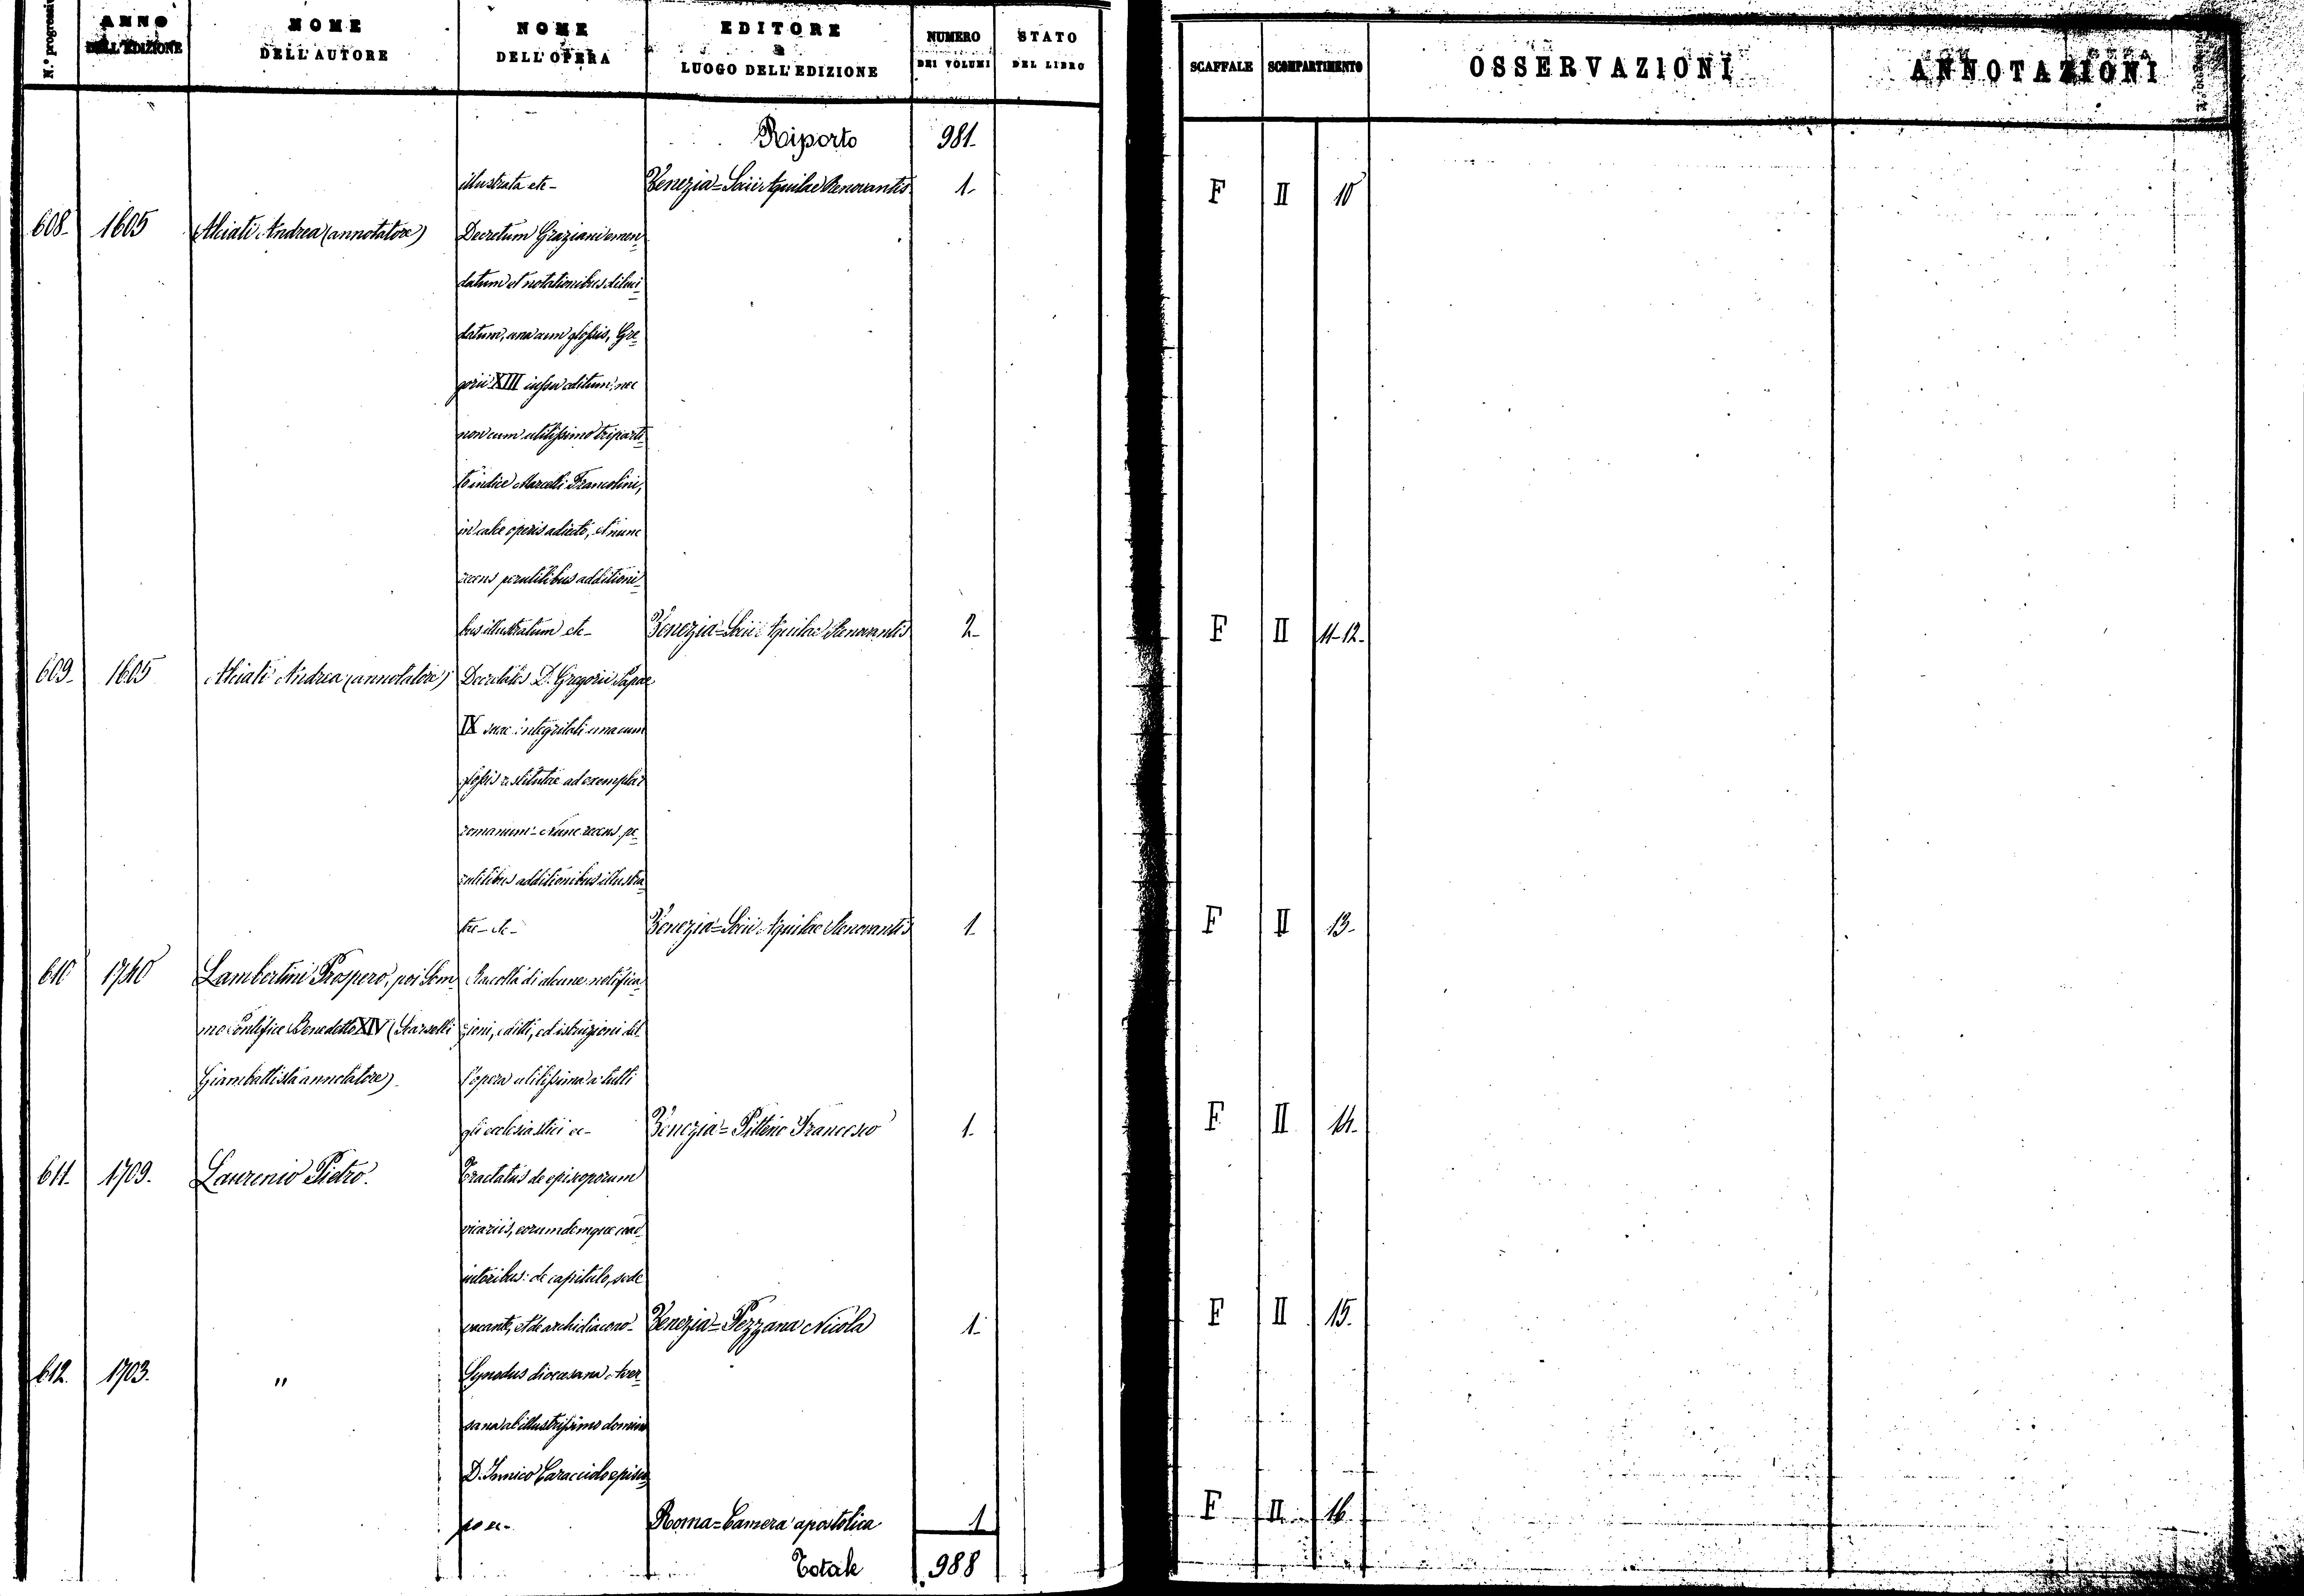 N.° progressi
ANNO DELL'EDIZIONE
NOME DELL'AUTORE
NOME DELL'OPERA
EDITORE e LUOGO DELL'EDIZIONE
NUMERO DEI VOLUMI
STATO DEL LIBRO
SCAFFALE SCOMPARTIMENTO OSSERVAZIONI ANNOTAZIONI
Riporto 981-
illustrata etc- Venezia=Socii Aquilae Renovantis 1- F II 10
608- 1605 Alciati Andrea (annotatore) Decretum Graziani emen-
datum et notationibus diluci-
datum, una cum glossis, Gre-
gorii XIII iussu editum; nec
non cum utilissimo triparti-
to indice Marcelli Francolini,
in calce operis adiecto, et nunc
recens perutilibus additioni-
bus illustratum etc- Venezia=Socii Aquilae Renovantis 2- F II 11-12-
609- 1605 Alciati Andrea (annotatore) Decretales D. Gregorii Papae
IX suae integritati una cum
glossis restitutae ad exemplar
romanum- Nunc recens pe-
rutilibus additionibus illustra-
tae- etc- Venezia=Socii Aquilae Renovantis 1- F II 13-
610 1740 Lambertini Prospero, poi Som- Raccolta di alcune notifica-
mo Pontefice Benedetto XIV (Scarselli zioni, editti, ed istruzioni del-
Giambattista annotatore) l'opera utilissima a tutti
gli ecclesiastici ec- Venezia=Pitteri Francesco 1- F II 14-
611- 1709. Laurenio Pietro. Tractatus de episcoporum
vicariis, eorumdemque coad-
iutoribus: de capitulo, sede
vacante, et de archidiacono- Venezia=Pezzana Nicola 1- F II 15.
612. 1703. " Synodus dioecesana Aver-
sana ab illustrissimo domino
D. Innico Caracciolo episco-
po ec- Roma=Camera apostolica 1 F II 16
Totale 988